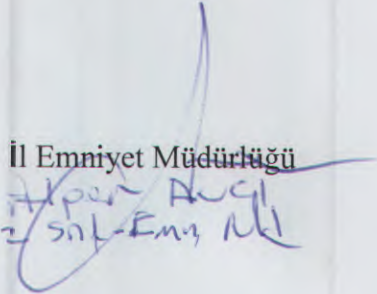 İl Emniyet Müdürlüğü
Alper Avcı
2 Snf-Emn Md